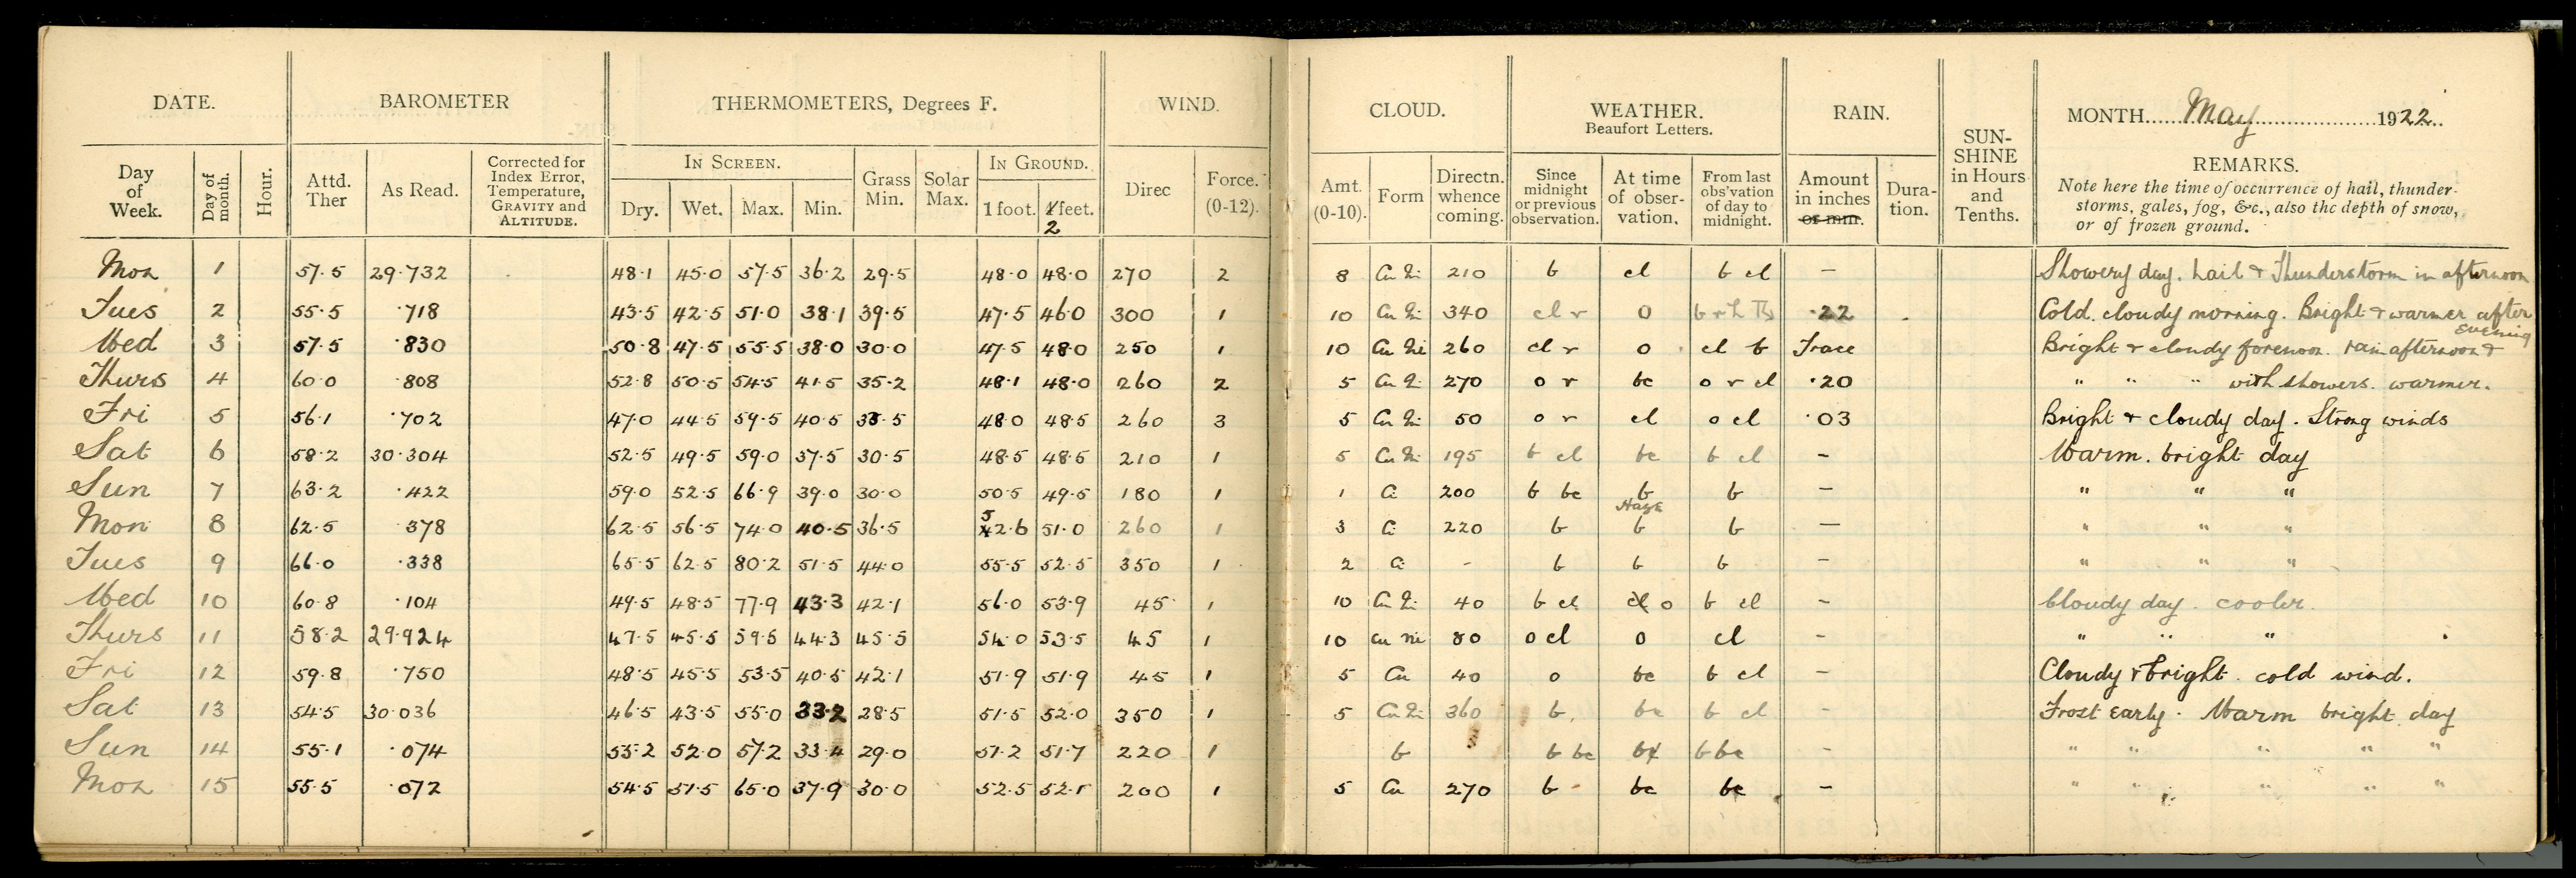 DATE. BAROMETER THERMOMETERS, Degrees F. WIND. CLOUD. WEATHER. Beaufort Letters. RAIN. SUN-SHINE in Hours and Tenths. MONTH May 1922
Day of Week. Day of month. Hour. Attd. Ther As Read. Corrected for Index Error, Temperature, GRAVITY and ALTITUDE. IN SCREEN. Dry. Wet. Max. Min. Grass Min. Solar Max. IN GROUND. 1 foot. 4 feet. 2 Direc Force. (0-12). Amt. (0-10). Form Directn. whence coming. Since midnight or previous observation. At time of obser-vation. From last obs'vation of day to midnight. Amount in inches or mm. Dura-tion. REMARKS.
Note here the time of occurrence of hail, thunder-
storms, gales, fog, &c., also the depth of snow,
or of frozen ground.
Mon 1 57.5 29.732 48.1 45.0 57.5 36.2 29.5 48.0 48.0 270 2 8 Cu Ni 210 b cl b cl - Showery day. hail & Thunderstorm in afternoon
Tues 2 55.5 .718 43.5 42.5 51.0 38.1 39.5 47.5 46.0 300 1 10 Cu Ni 340 cl r o b r h Th .22 Cold. cloudy morning. Bright & warmer after
Wed 3 57.5 .830 50.8 47.5 55.5 38.0 30.0 47.5 48.0 250 1 10 Cu Ni 260 cl r o cl b Trace Bright & cloudy forenoon. rain afternoon & evening
Thurs 4 60.0 .808 52.8 50.5 54.5 41.5 35.2 48.1 48.0 260 2 5 Cu Ni 270 o r bc o r cl .20 " " " with showers. warmer.
Fri 5 56.1 .702 47.0 44.5 59.5 40.5 35.5 48.0 48.5 260 3 5 Cu Ni 50 o r cl o cl .03 Bright & cloudy day. Strong winds
Sat 6 58.2 30.304 52.5 49.5 59.0 37.5 30.5 48.5 48.5 210 1 5 Cu Ni 195 b cl bc b cl - Warm. bright day
Sun 7 63.2 .422 59.0 52.5 66.9 39.0 30.0 50.5 49.5 180 1 1 Ci 200 b bc b b - " " "
Mon 8 62.5 .378 62.5 56.5 74.0 40.5 36.5 52.6 51.0 260 1 3 Ci 220 b Haze b b - " " "
Tues 9 66.0 .338 65.5 62.5 80.2 51.5 44.0 55.5 52.5 350 1 2 Ci - b b b - " " "
Wed 10 60.8 .104 49.5 48.5 77.9 43.3 42.1 56.0 53.9 45 1 10 Cu Ni 40 b cl cl o b cl - Cloudy day. cooler.
Thurs 11 58.2 29.924 47.5 45.5 59.5 44.3 45.5 54.0 53.5 45 1 10 cu ni 80 o cl o cl - " " "
Fri 12 59.8 .750 48.5 45.5 53.5 40.5 42.1 51.9 51.9 45 1 5 Cu 40 o bc b cl - Cloudy & bright. cold wind.
Sat 13 54.5 30.036 46.5 43.5 55.0 33.2 28.5 51.5 52.0 350 1 5 Cu Ni 360 b. bc b cl - Frost early. Warm bright day
Sun 14 55.1 .074 55.2 52.0 57.2 33.4 29.0 51.2 51.7 220 1 b b bc b b bc - " " " " "
Mon 15 55.5 .072 54.5 51.5 65.0 37.9 30.0 52.5 52.1 200 1 5 Cu 270 b bc bc - " " " " "